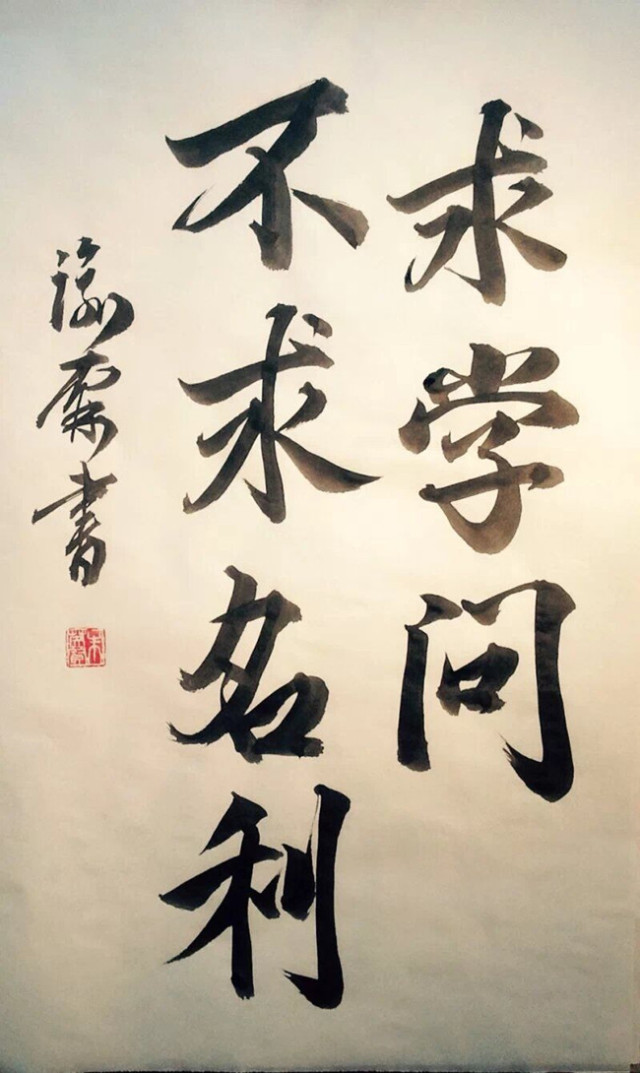 求学问
不求名利
书